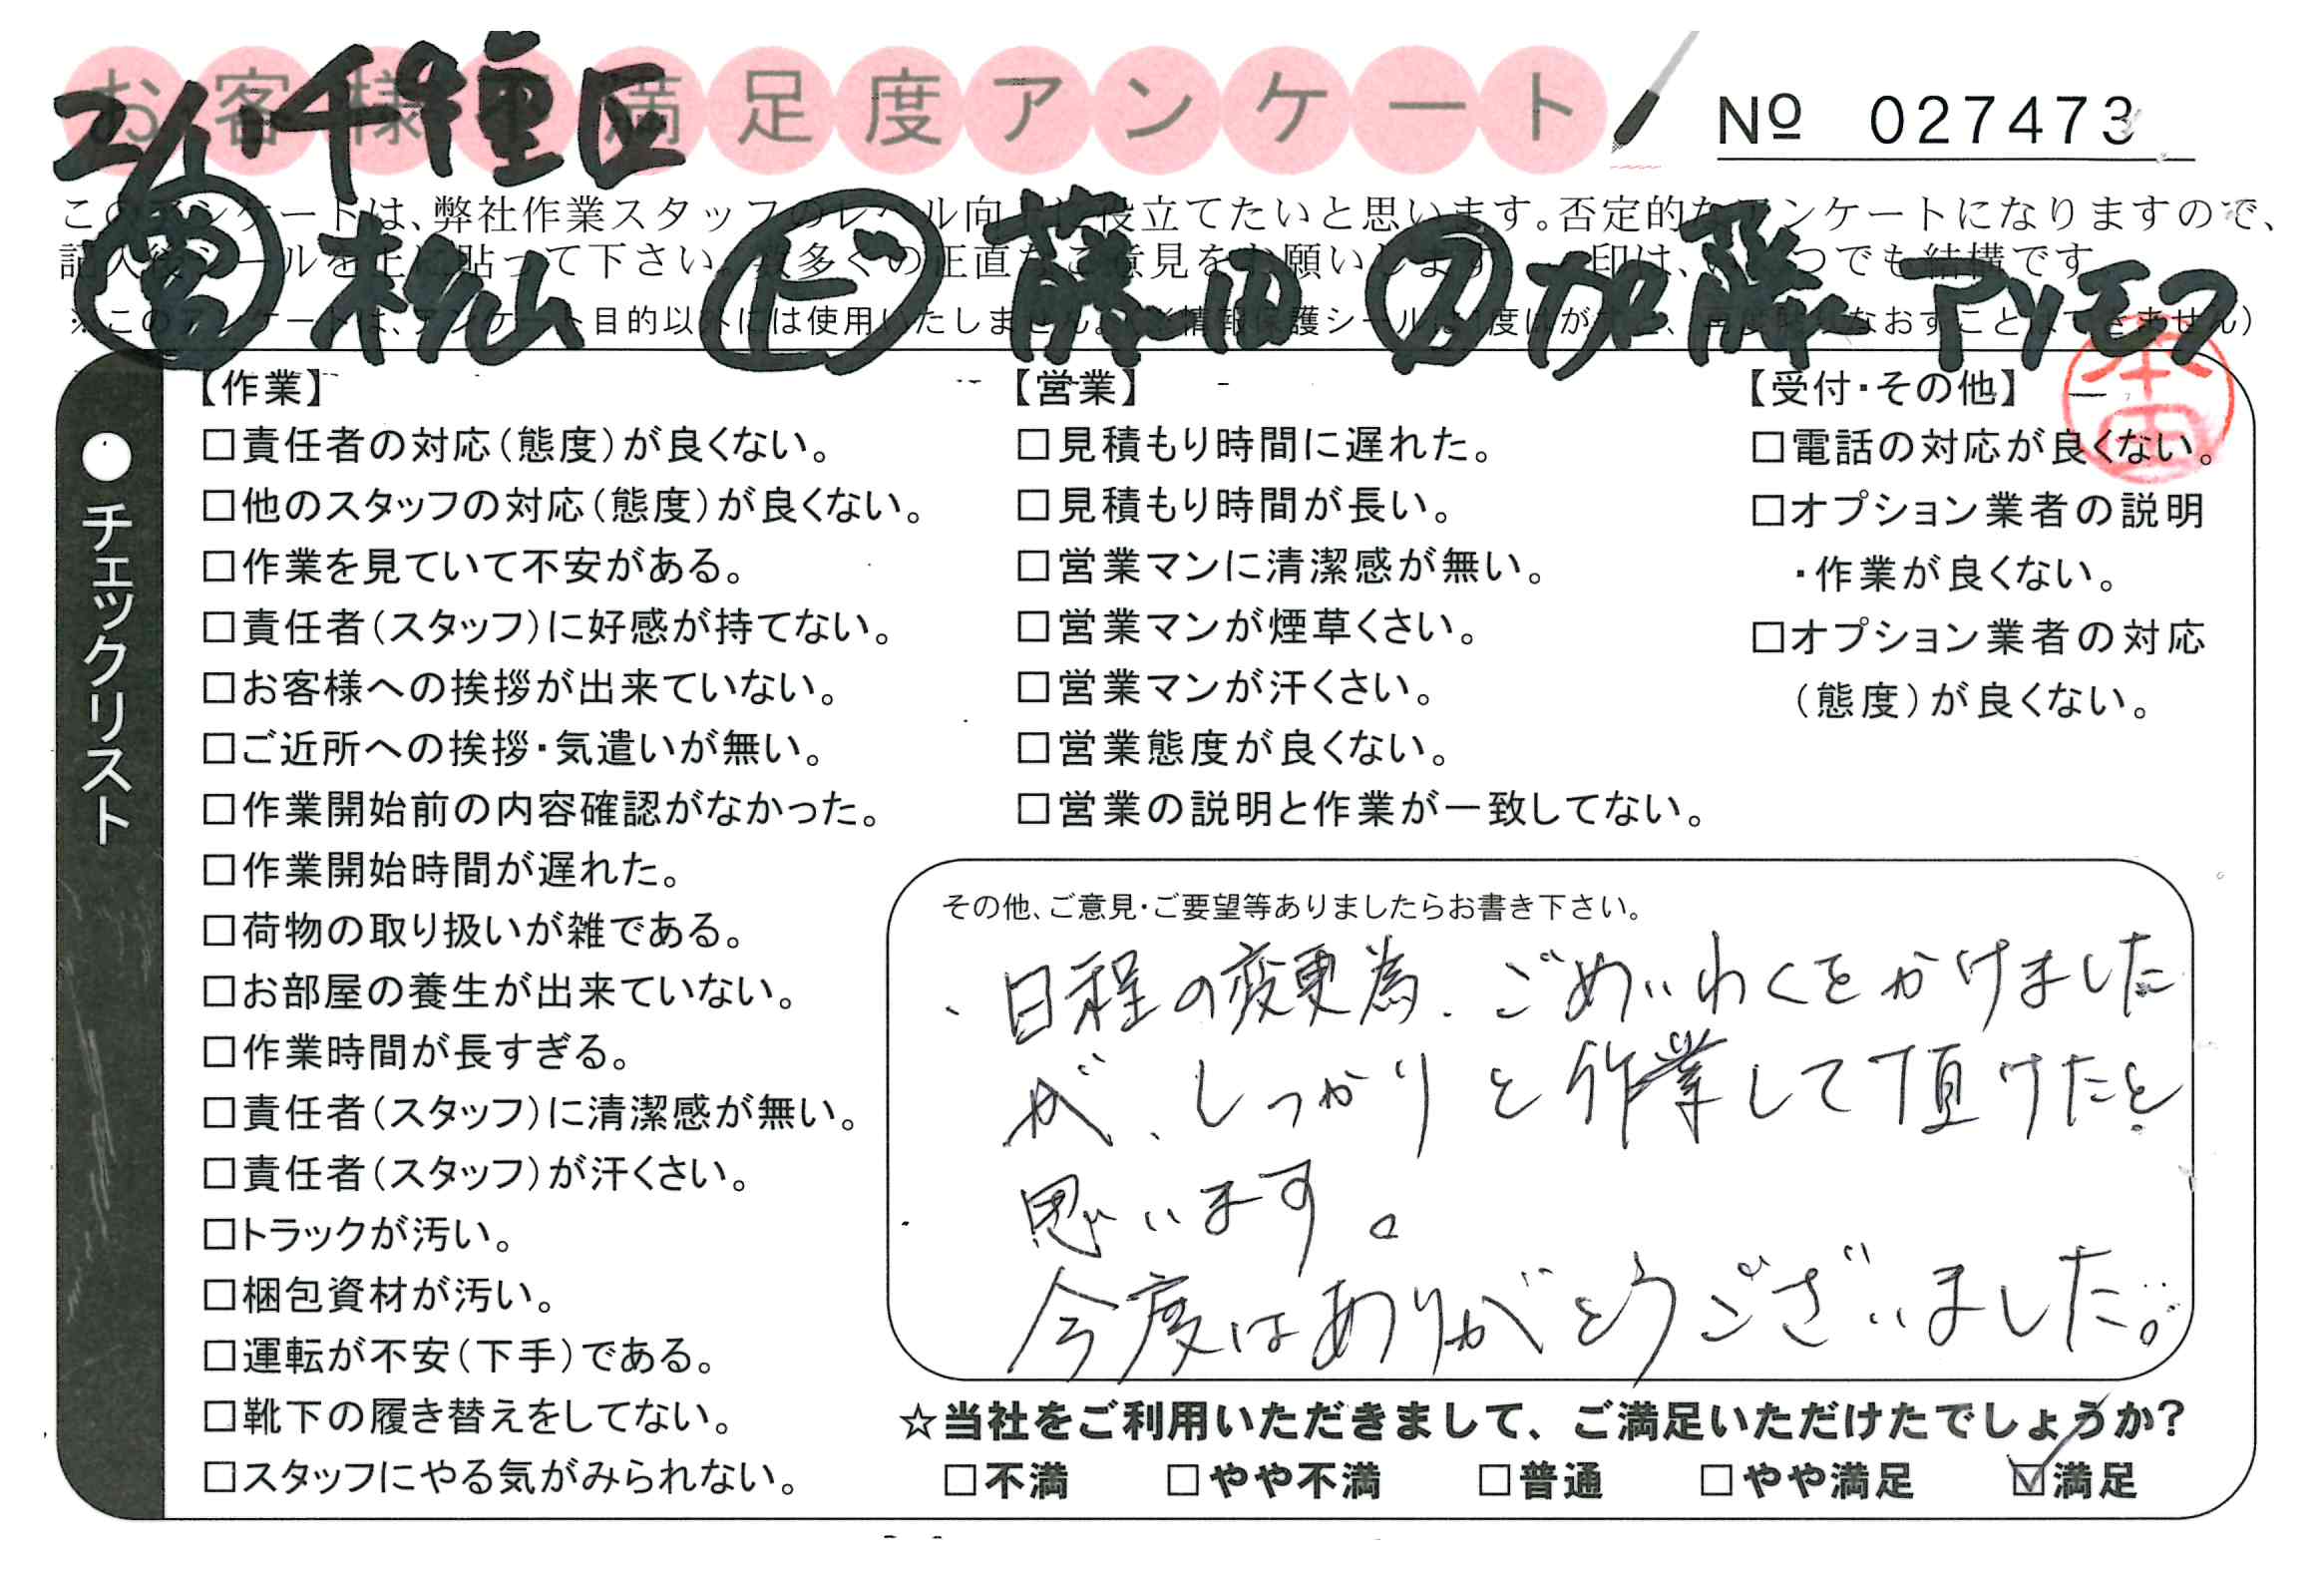 お客様 満足度アンケート
№ 027473
2/1 千種区
このアンケートは、弊社作業スタッフのレベル向上に役立てたいと思います。否定的なアンケートになりますので、
記入後シールを上に貼って下さい。数多くの正直なご意見をお願いします。 印は、いくつでも結構です
営 松山 ド 藤田 ス 加藤 アリモフ
※このアンケートは、アンケート目的以外には使用いたしません。
本田
●チェックリスト
【作業】
□責任者の対応(態度)が良くない。
□他のスタッフの対応(態度)が良くない。
□作業を見ていて不安がある。
□責任者(スタッフ)に好感が持てない。
□お客様への挨拶が出来ていない。
□ご近所への挨拶・気遣いが無い。
□作業開始前の内容確認がなかった。
□作業開始時間が遅れた。
□荷物の取り扱いが雑である。
□お部屋の養生が出来ていない。
□作業時間が長すぎる。
□責任者(スタッフ)に清潔感が無い。
□責任者(スタッフ)が汗くさい。
□トラックが汚い。
□梱包資材が汚い。
□運転が不安(下手)である。
□靴下の履き替えをしてない。
□スタッフにやる気がみられない。
【営業】
□見積もり時間に遅れた。
□見積もり時間が長い。
□営業マンに清潔感が無い。
□営業マンが煙草くさい。
□営業マンが汗くさい。
□営業態度が良くない。
□営業の説明と作業が一致してない。
【受付・その他】
□電話の対応が良くない。
□オプション業者の説明
・作業が良くない。
□オプション業者の対応
(態度)が良くない。
その他、ご意見・ご要望等ありましたらお書き下さい。
、日程の変更為、ごめいわくをかけました
が、しっかりと作業して頂けたと
思います。
今度はありがとうございました。
☆当社をご利用いただきまして、ご満足いただけたでしょうか?
□不満 □やや不満 □普通 □やや満足 ☑満足